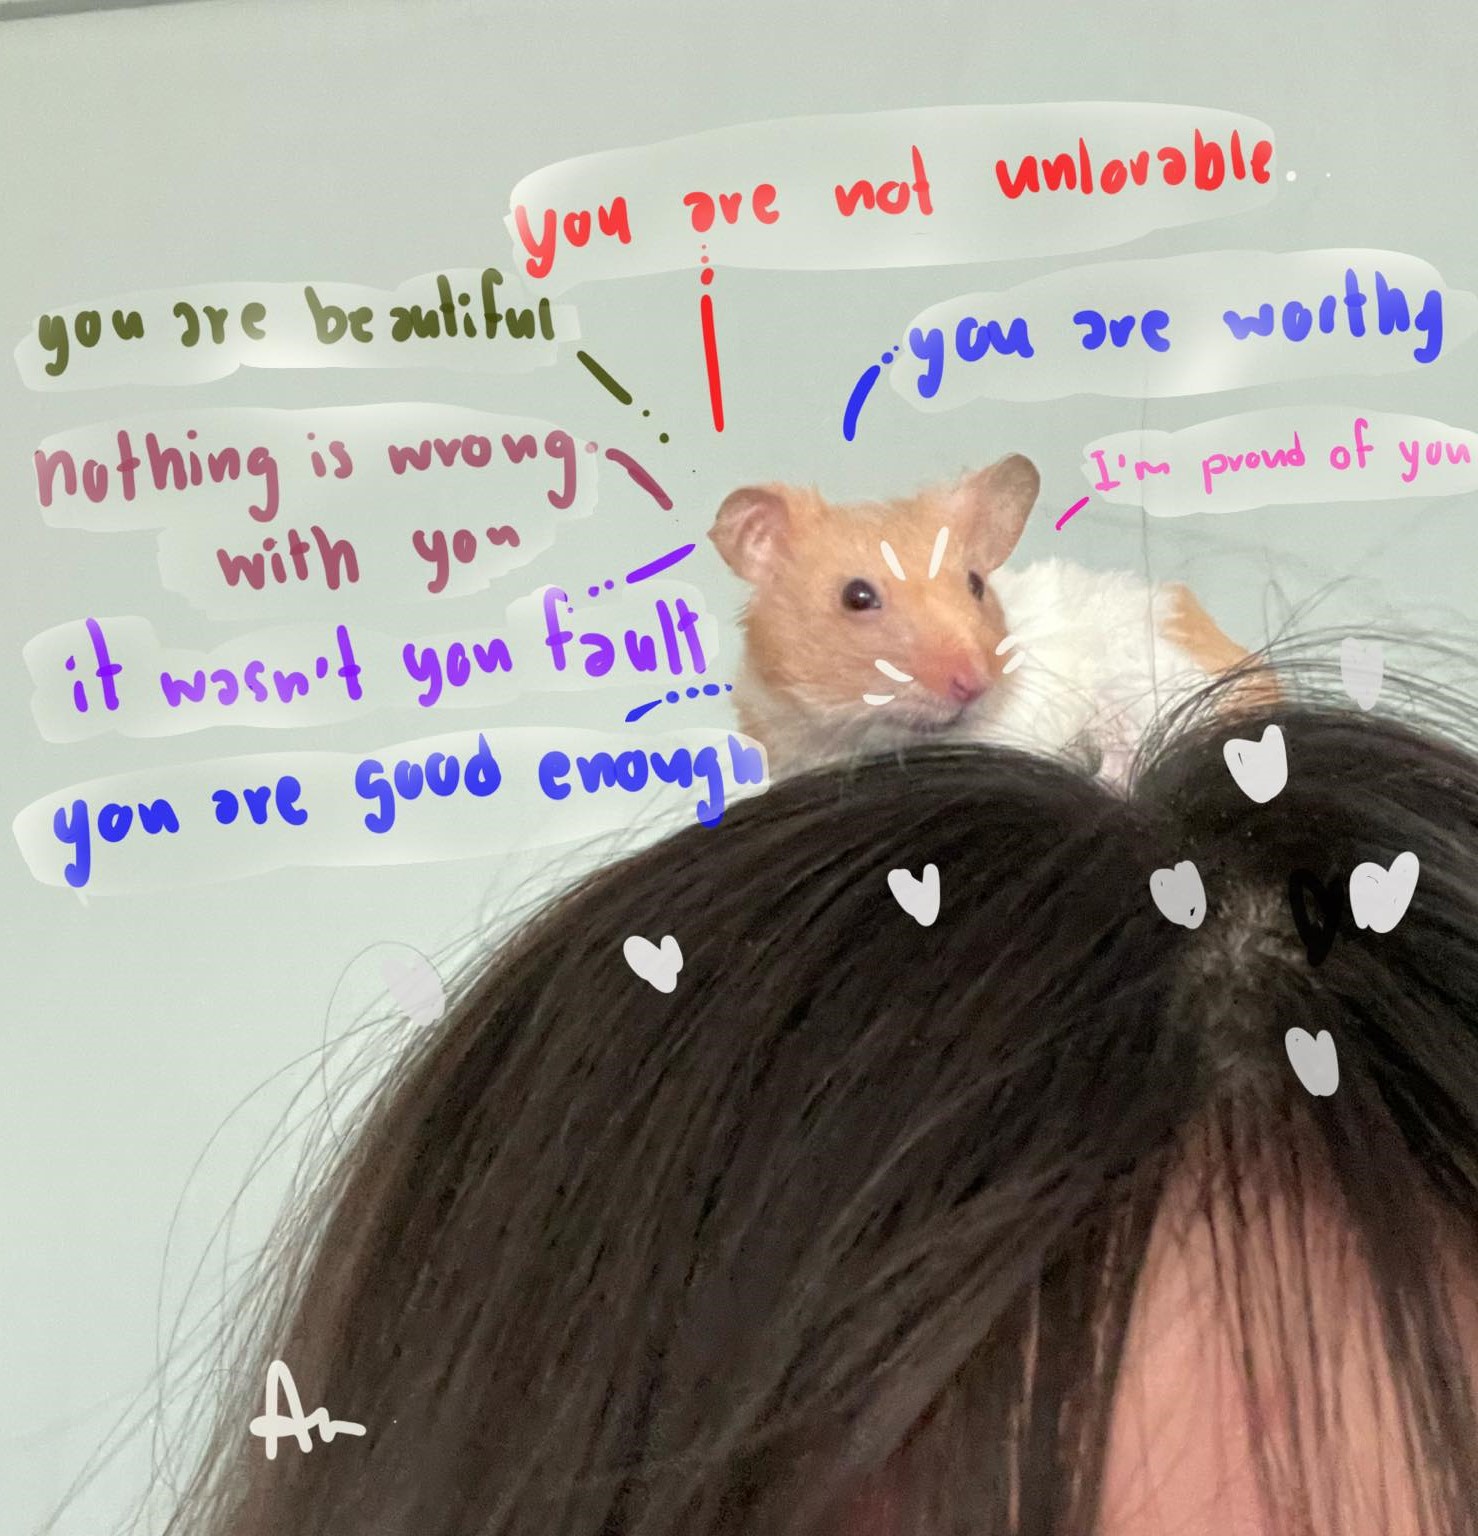 you are not unlovable
you are beautiful
you are worthy
nothing is wrong
with you
I'm proud of you
it wasn't you fault
you are good enough
An